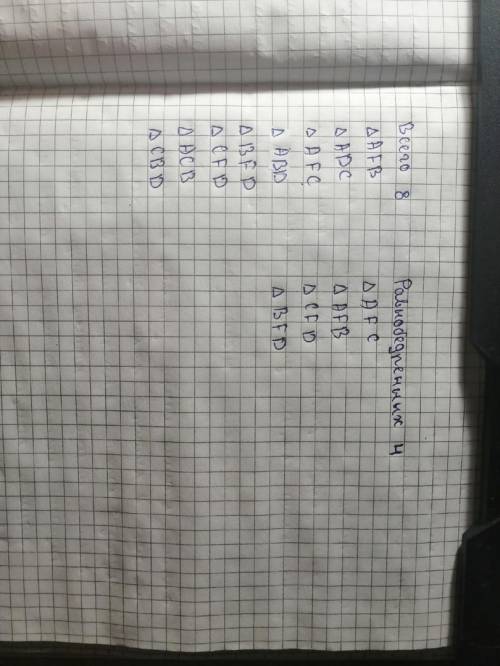 Всего 8 Равнобедренных 4
Δ AFB Δ AFC
Δ ADC Δ AFB
Δ AFC Δ CFD
Δ ABD Δ BFD
Δ BFD
Δ CFD
Δ ACB
Δ CBD